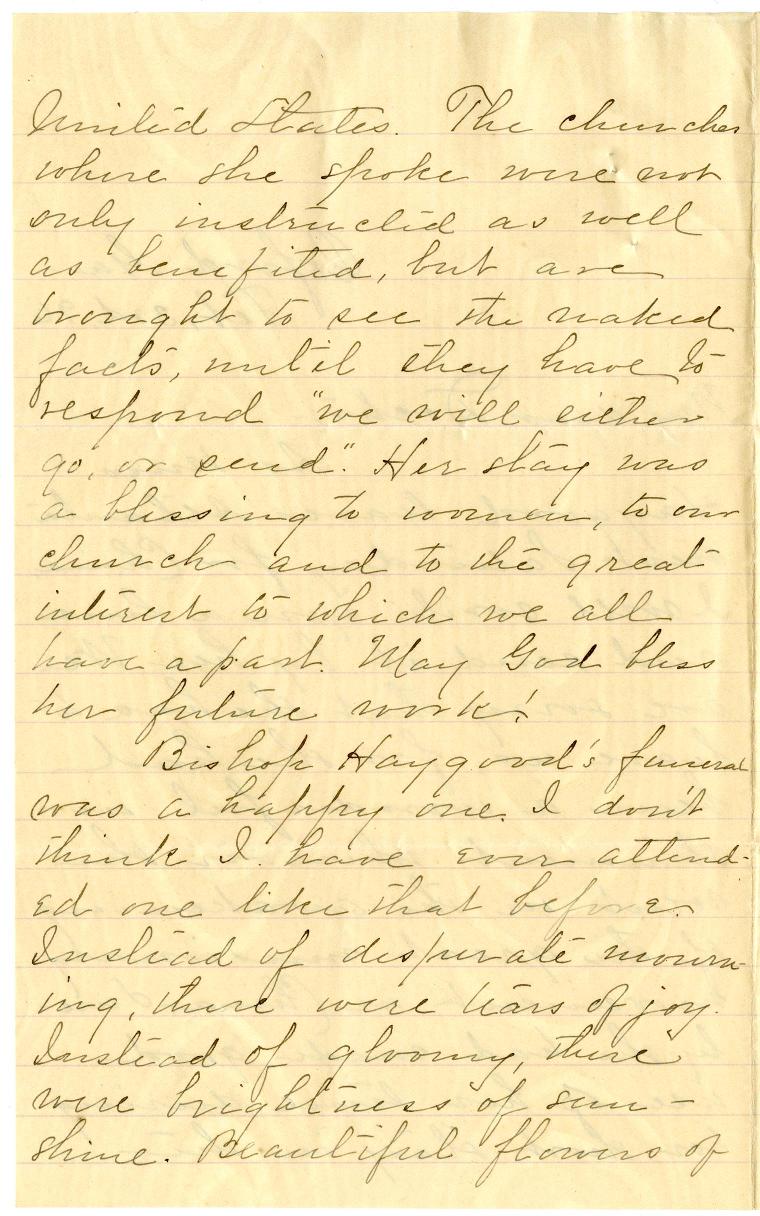 United States. The churches
where she spoke were not
only instructed as well
as benefited, but are
brought to see the naked
facts, until they have to
respond "we will either
go, or send". Her stay was
a blessing to women, to our
church and to the great
interest to which we all
have a part. May God bless
her future work!
Bishop Haygood's funeral
was a happy one. I don't
think I have ever attend-
ed one like that before.
Instead of desperate mourn-
ing, there were tears of joy.
Instead of gloomy, there
were brightness of sun-
shine. Beautiful flowers of